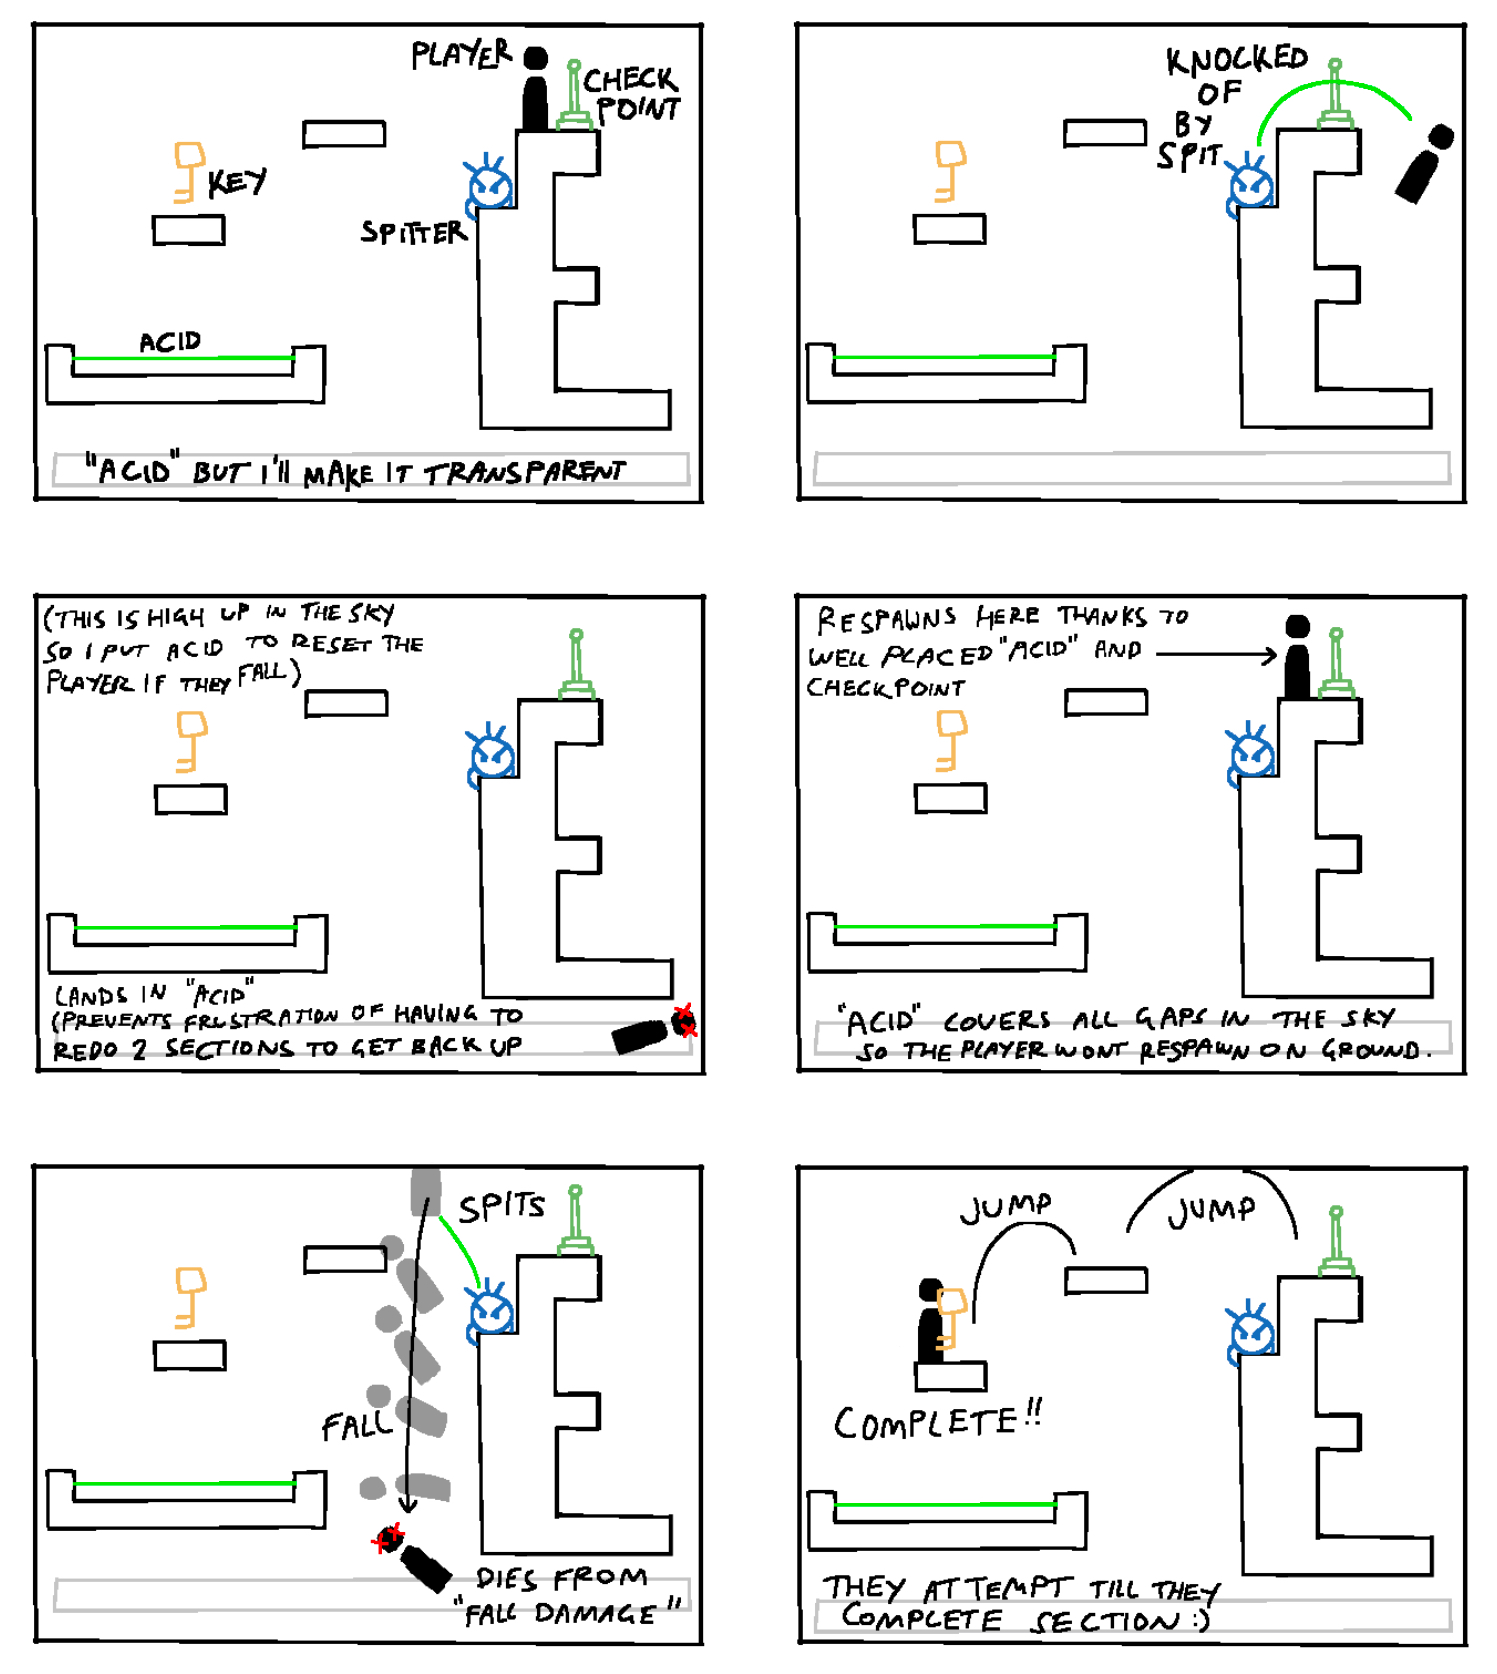 PLAYER
CHECK
POINT
KEY
SPITTER
ACID
"ACID" BUT I'll MAKE IT TRANSPARENT
KNOCKED
OF
BY
SPIT
(THIS IS HIGH UP IN THE SKY
SO I PUT ACID TO RESET THE
PLAYER IF THEY FALL)
LANDS IN "ACID"
(PREVENTS FRUSTRATION OF HAVING TO
REDO 2 SECTIONS TO GET BACK UP
RESPAWNS HERE THANKS TO
WELL PLACED "ACID" AND
CHECKPOINT
"ACID" COVERS ALL GAPS IN THE SKY
SO THE PLAYER WONT RESPAWN ON GROUND.
SPITS
FALL
DIES FROM
"FALL DAMAGE"
JUMP
JUMP
COMPLETE!!
THEY ATTEMPT TILL THEY
COMPLETE SECTION :)